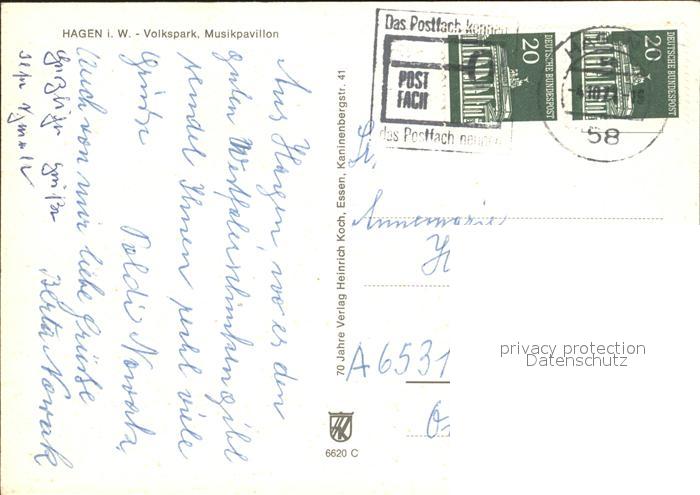 HAGEN i. W. - Volkspark, Musikpavillon
Aus Hagen, wo es den
guten Westfalenschinken gibt
sendet Ihnen recht viele
Grüße
Poldi Nowak.
Auch von mir liebe Grüße
Berta Nowak
Grüße
70 Jahre Verlag Heinrich Koch, Essen, Kaninenbergstr. 41
6620 C
Das Postfach kennen
POST
FACH
das Postfach nennen
20
DEUTSCHE BUNDESPOST
20
DEUTSCHE BUNDESPOST
58
Annemarie
A 6531
privacy protection
Datenschutz